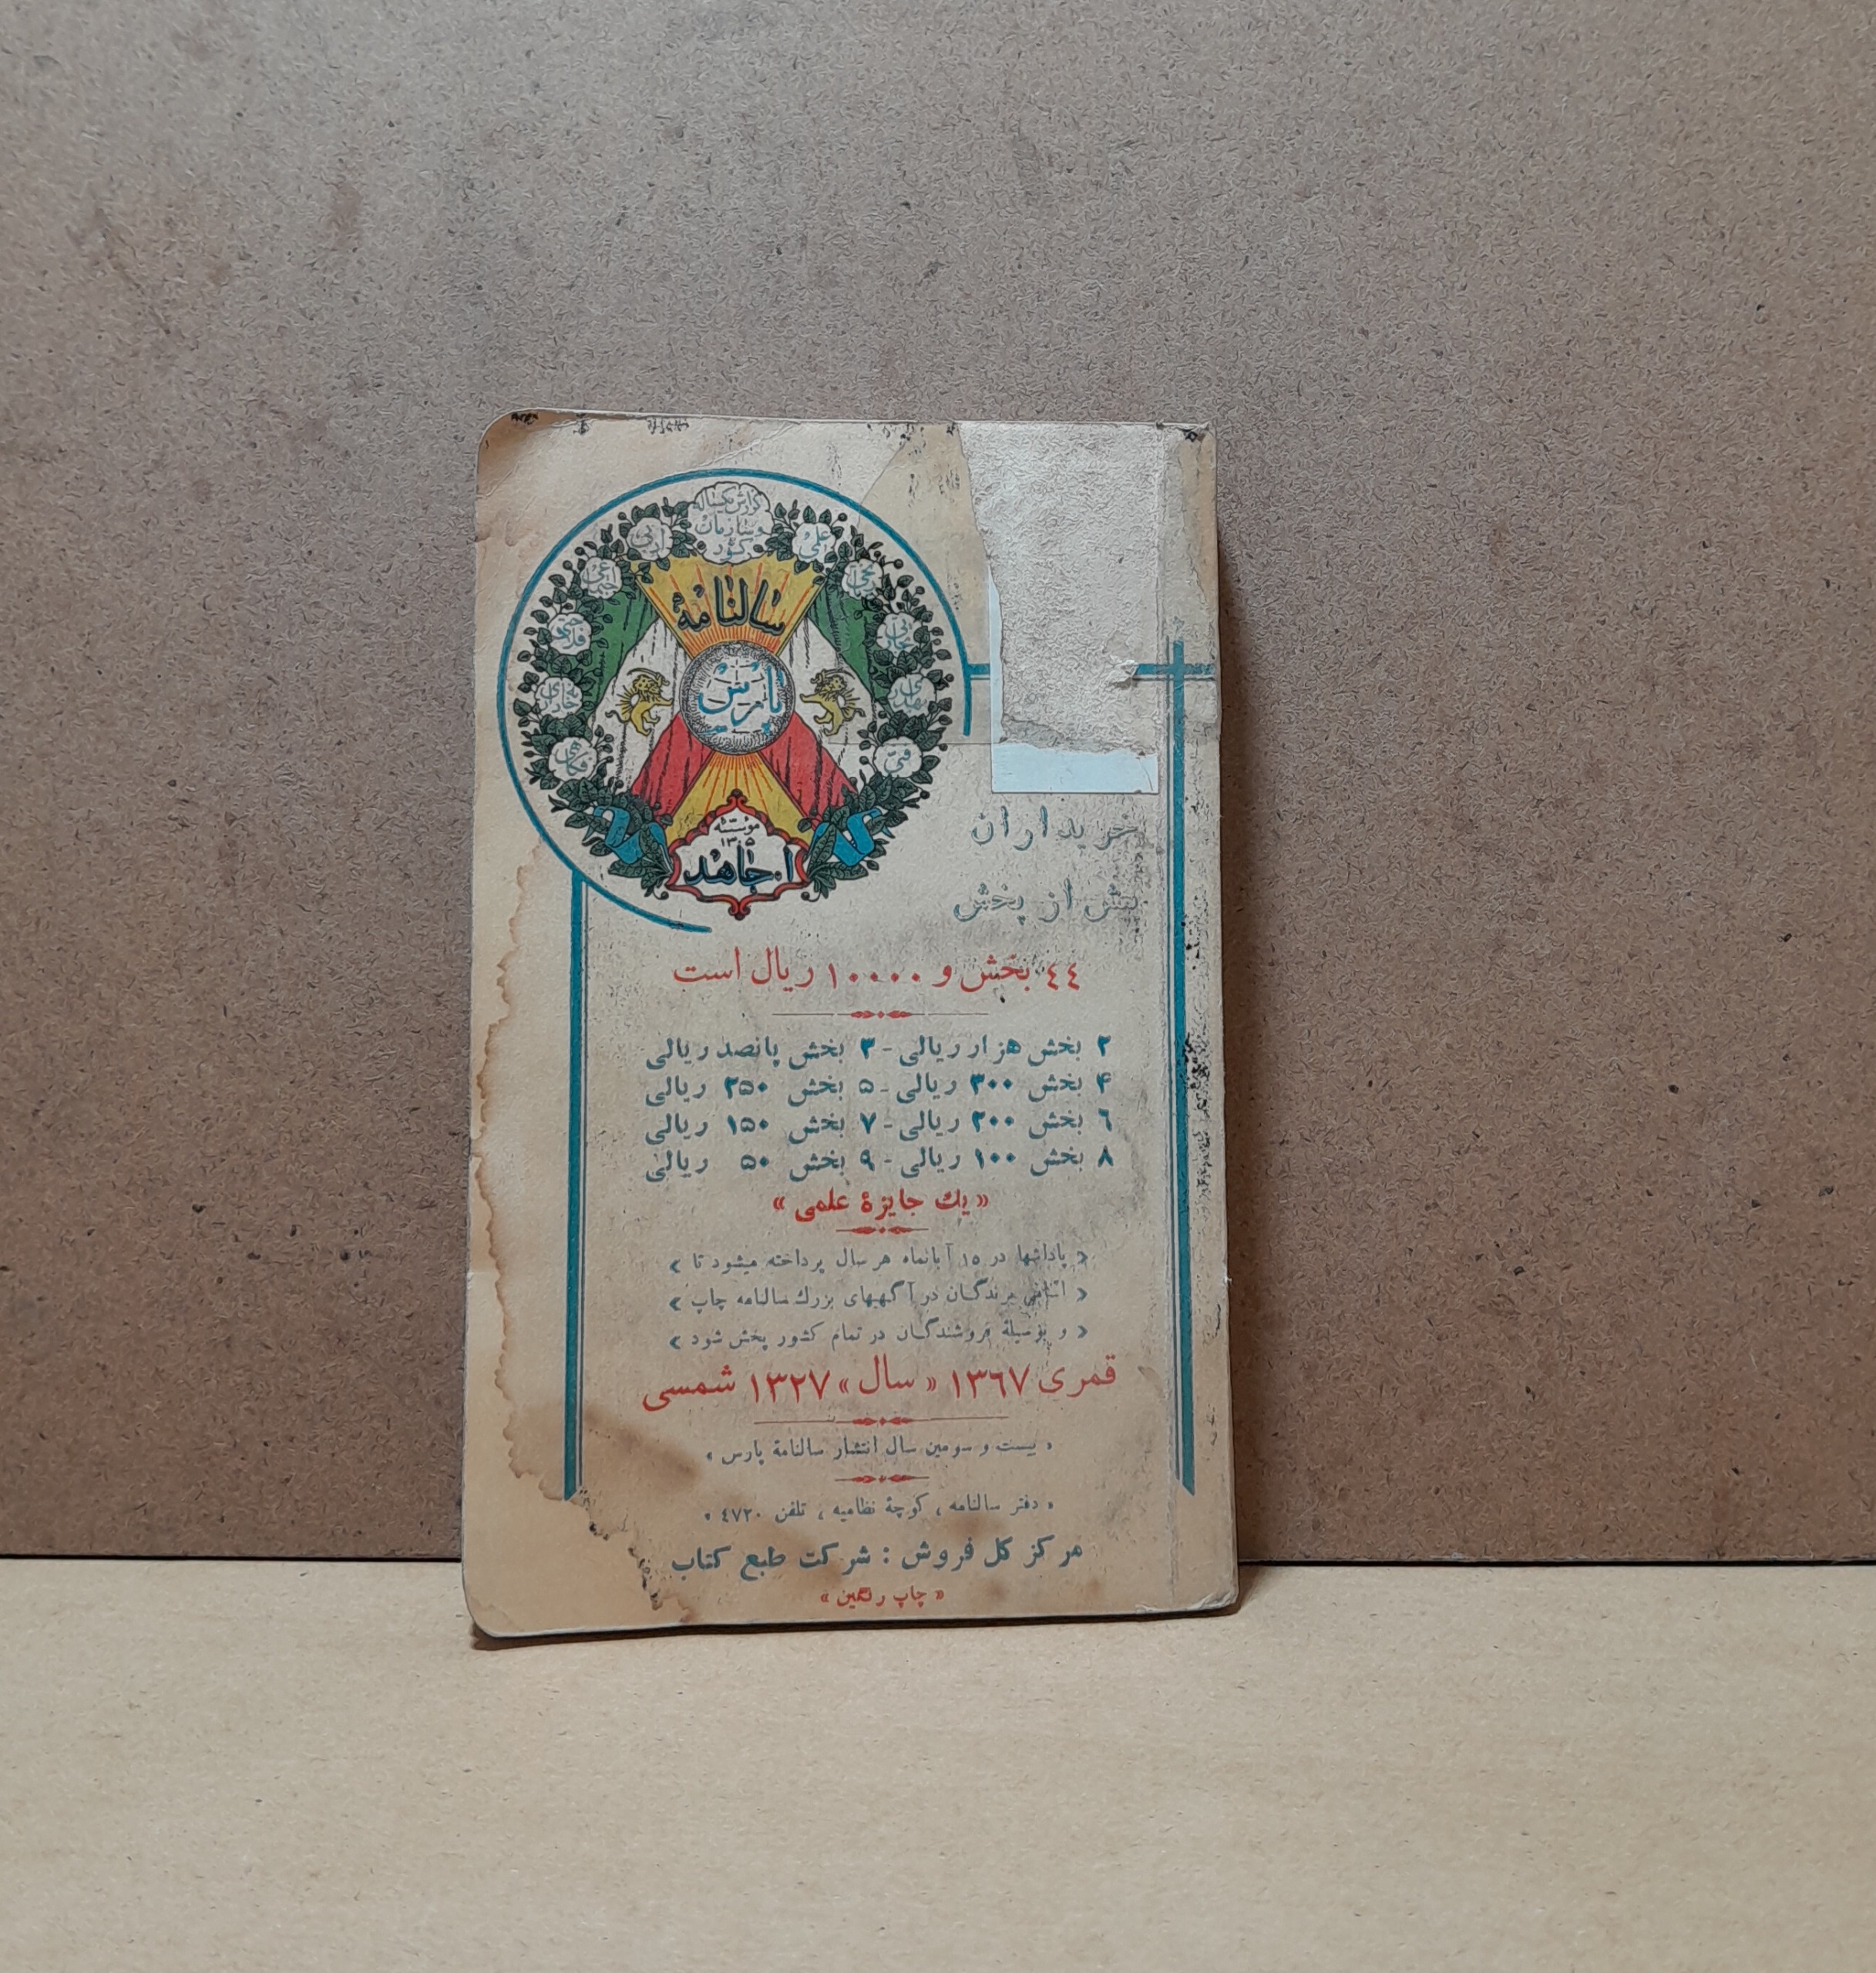 گزارش یکساله
و سازمان
کشور
علمی
ادبی
اجتماعی
فنی
سالنامهٔ
پارس
موسسه
۱۳۰۵
ا. جاهد
خریداران
پیش از پخش
٤٤ بخش و ۱۰۰۰۰ ریال است
۲ بخش هزار ریالی - ۳ بخش پانصد ریالی
۴ بخش ۳۰۰ ریالی - ۵ بخش ۲۵۰ ریالی
٦ بخش ۲۰۰ ریالی - ۷ بخش ۱۵۰ ریالی
۸ بخش ۱۰۰ ریالی - ۹ بخش ۵۰ ریالی
«یك جایزهٔ علمی»
« پاداشها در ۱۵ آبانماه هر سال پرداخته میشود تا »
« اسامی برندگان در آگهیهای بزرك سالنامه چاپ »
« و بوسیلهٔ فروشندگان در تمام کشور پخش شود »
قمری ۱۳٦۷ «سال» ۱۳۲۷ شمسی
« بیست و سومین سال انتشار سالنامهٔ پارس »
« دفتر سالنامه ، کوچهٔ نظامیه ، تلفن ٤۷۲۰ »
مرکز کل فروش : شرکت طبع کتاب
« چاپ رنگین »